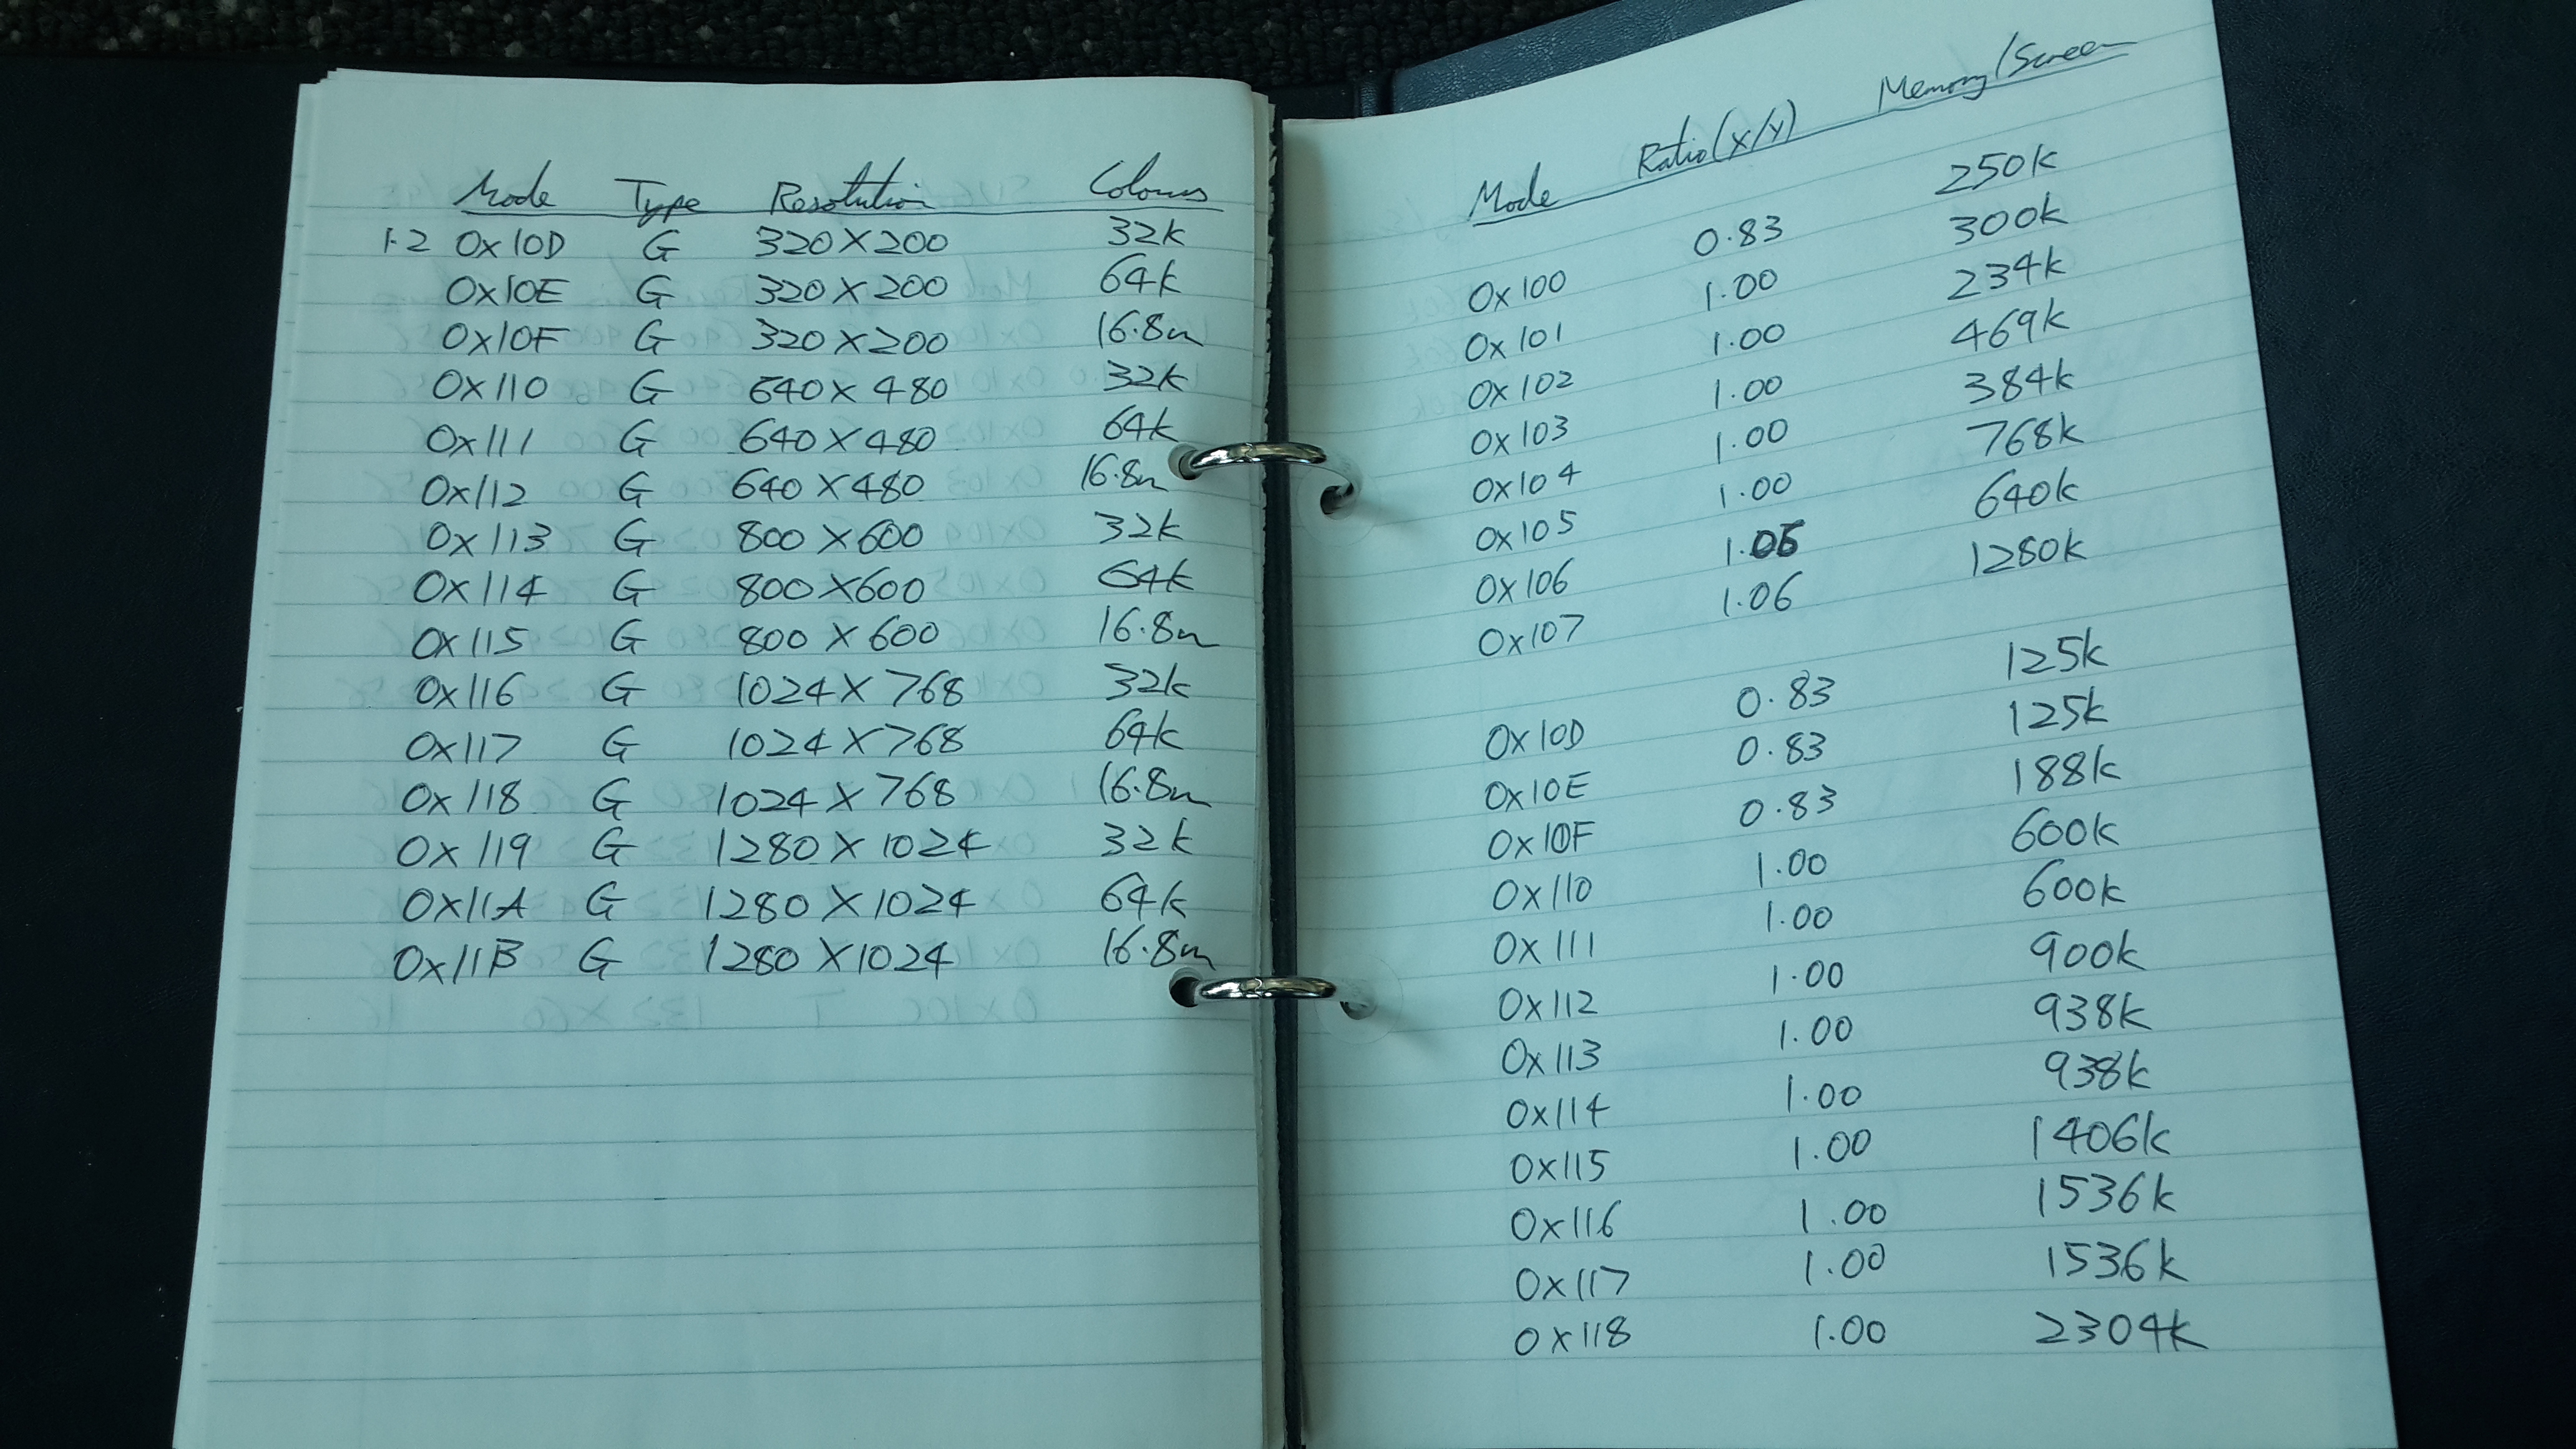 Mode Type Resolution Colours
1.2 0x10D G 320X200 32k
0x10E G 320X200 64k
0x10F G 320X200 16.8m
0x110 G 640X480 32k
0x111 G 640X480 64k
0x112 G 640X480 16.8m
0x113 G 800X600 32k
0x114 G 800X600 64k
0x115 G 800X600 16.8m
0x116 G 1024X768 32k
0x117 G 1024X768 64k
0x118 G 1024X768 16.8m
0x119 G 1280X1024 32k
0x11A G 1280X1024 64k
0x11B G 1280X1024 16.8m
Mode Ratio(X/Y) Memory/Screen
0x100 0.83 250k
0x101 1.00 300k
0x102 1.00 234k
0x103 1.00 469k
0x104 1.00 384k
0x105 1.00 768k
0x106 1.06 640k
0x107 1.06 1280k
0x10D 0.83 125k
0x10E 0.83 125k
0x10F 0.83 188k
0x110 1.00 600k
0x111 1.00 600k
0x112 1.00 900k
0x113 1.00 938k
0x114 1.00 938k
0x115 1.00 1406k
0x116 1.00 1536k
0x117 1.00 1536k
0x118 1.00 2304k